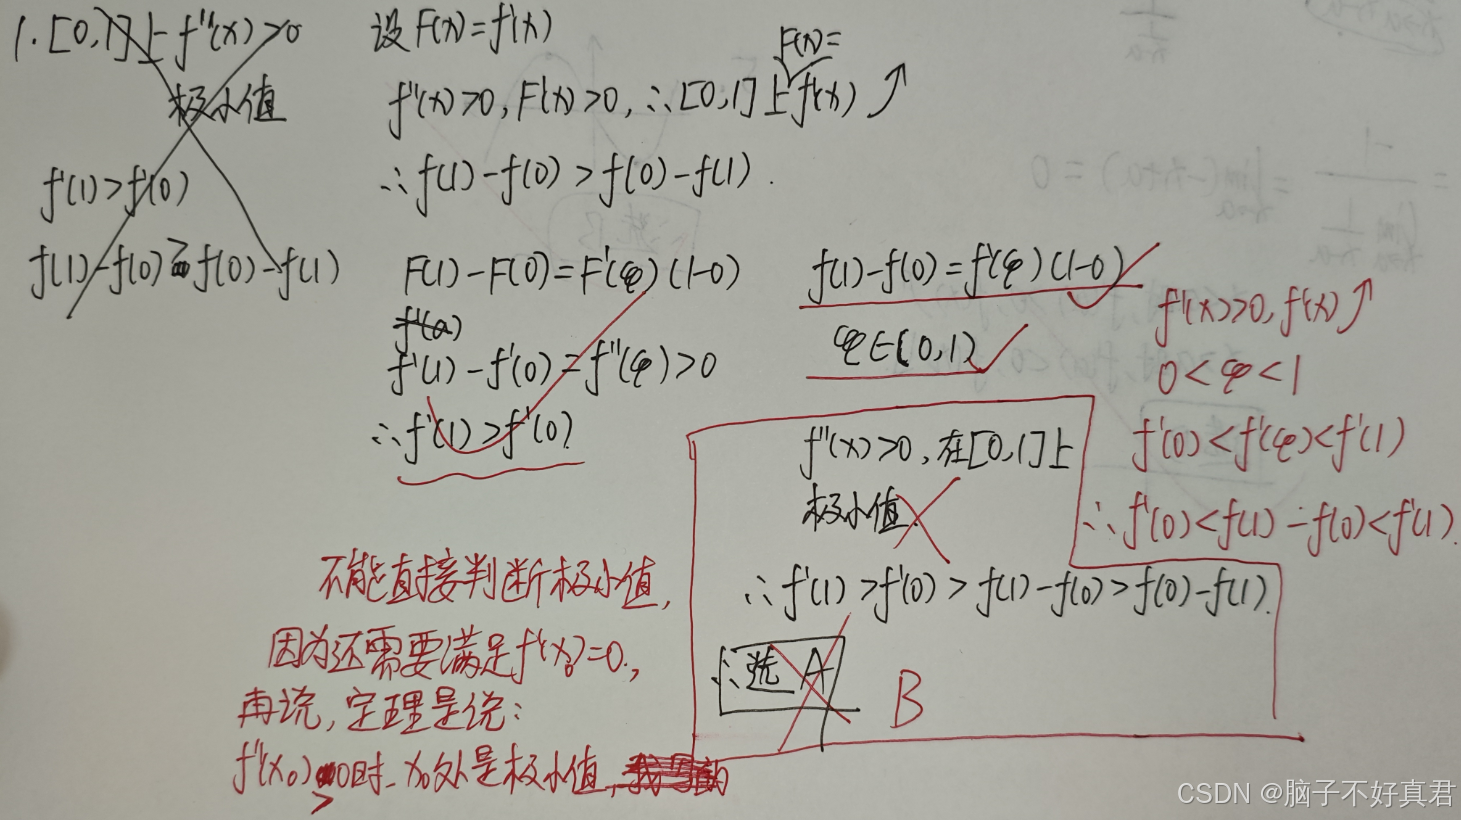 1. [0,1]上f''(x)>0
极小值
f'(1)>f'(0)
f(1)-f(0)≥f(0)-f(1)
设F(x)=f'(x)
F(x)=
f''(x)>0, F'(x)>0, ∴[0,1]上f'(x)↗
∴f(1)-f(0)>f(0)-f(1).
F(1)-F(0)=F'(φ)(1-0)
f'(a)
f'(1)-f'(0)=f''(φ)>0
∴f'(1)>f'(0)
f(1)-f(0)=f'(φ)(1-0)
φ∈(0,1)
f''(x)>0, f'(x)↗
0<φ<1
f'(0)<f'(φ)<f'(1)
∴f'(0)<f(1)-f(0)<f'(1).
f''(x)>0,在[0,1]上
极小值.
∴f'(1)>f'(0)>f(1)-f(0)>f(0)-f(1).
∴选A
B
不能直接判断极小值,
因为还需要满足f'(x₀)=0.,
再说,定理是说:
f''(x₀)>0时.x₀处是极小值,
CSDN @脑子不好真君